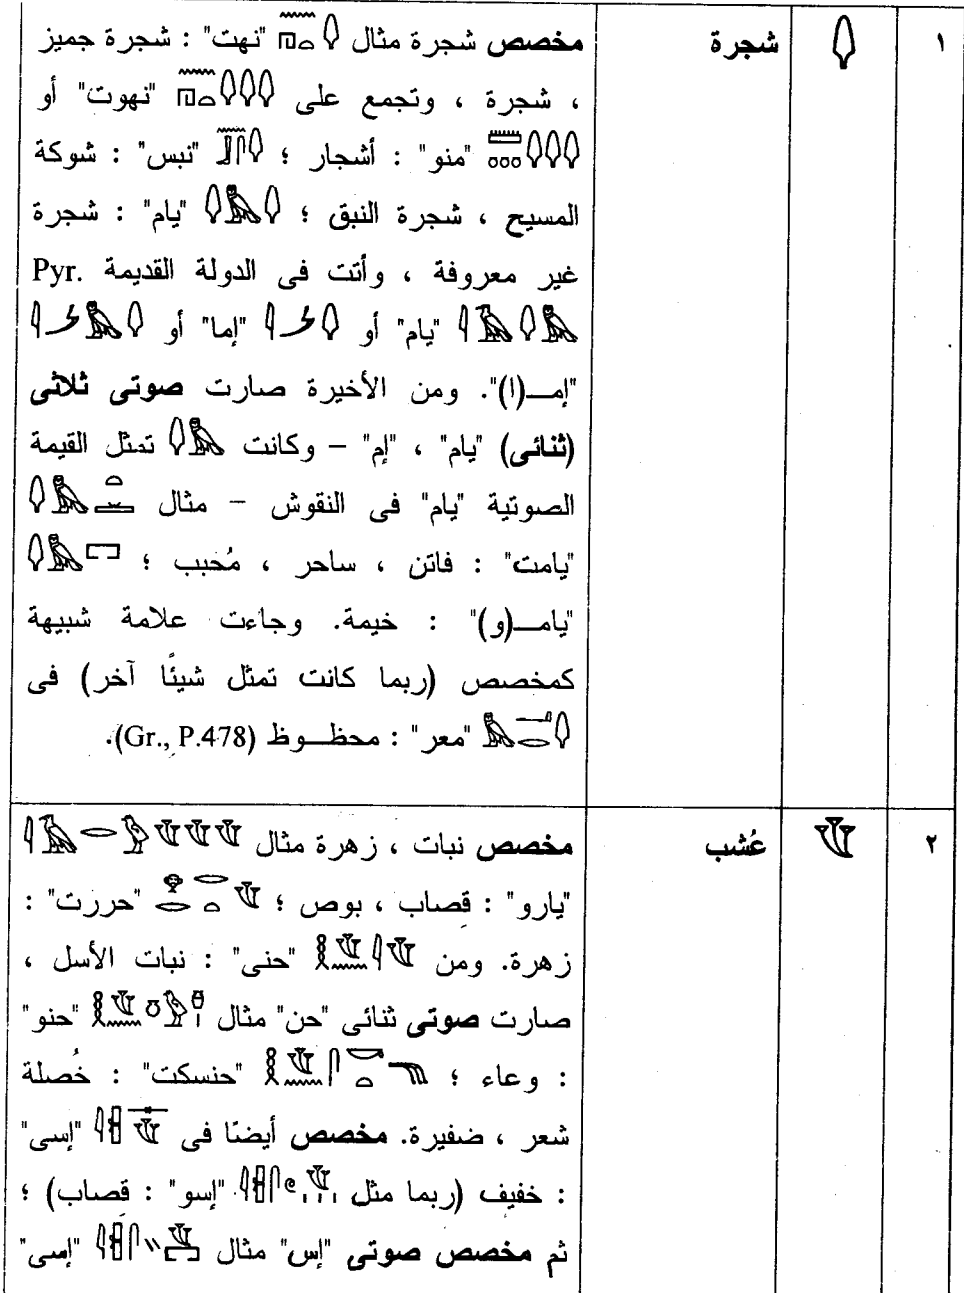 ١ شجرة مخصص شجرة مثال "نهت" : شجرة جميز
، شجرة ، وتجمع على "نهوت" أو
"منو" : أشجار ؛ "نبس" : شوكة
المسيح ، شجرة النبق ؛ "يام" : شجرة
غير معروفة ، وأتت فى الدولة القديمة Pyr.
"يام" أو "إما" أو
"إمـــ(ا)". ومن الأخيرة صارت صوتى ثلاثى
(ثنائى) "يام" ، "إم" – وكانت تمثل القيمة
الصوتية "يام" فى النقوش – مثال
"يامت" : فاتن ، ساحر ، مُحبب ؛
"يامـــ(و)" : خيمة. وجاءت علامة شبيهة
كمخصص (ربما كانت تمثل شيئًا آخر) فى
"معر" : محظــوظ (Gr., P.478).
٢ عُشب مخصص نبات ، زهرة مثال
"يارو" : قصاب ، بوص ؛ "حررت" :
زهرة. ومن "حنى" : نبات الأسل ،
صارت صوتى ثنائى "حن" مثال "حنو"
: وعاء ؛ "حنسكت" : خُصلة
شعر ، ضفيرة. مخصص أيضًا فى "إسى"
: خفيف (ربما مثل "إسو" : قصاب) ؛
ثم مخصص صوتى "إس" مثال "إسى"